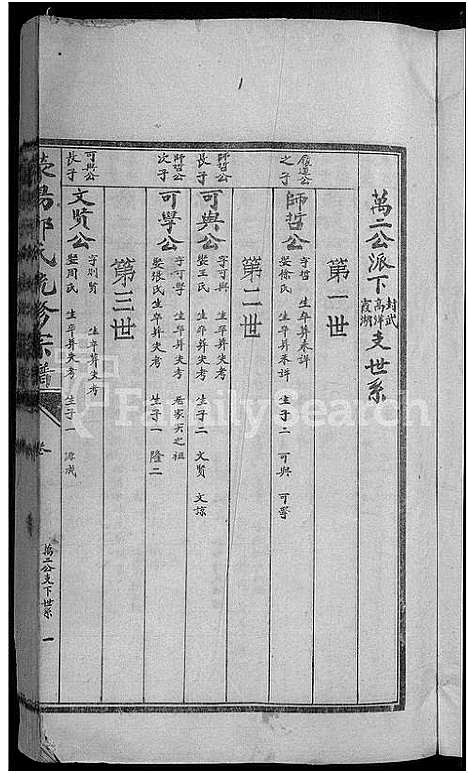 萬二公派下封武高洋霞湖支世系
第一世
之子
師哲公
字哲 生卒葬未詳
娶徐氏 生子二 可興 可學
第二世
師哲公長子
可興公
字可興 生卒葬失考
娶王氏 生子二 文賢 文諒
師哲公次子
可學公
字可學 生卒葬失考
娶張氏 生子一 隆二
第三世
可興公長子
文賢公
生卒葬失考
娶周氏 生子一
氏 修宗譜 卷
萬二公支下世系 一
FamilySearch
1